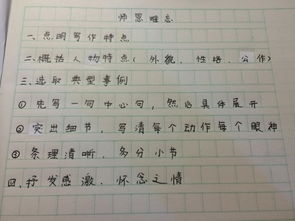 师恩难忘
一、点明写作特点
二、概括人物特点(外貌,性格,公作)
三、选取典型事例
①先写一句中心句,然后具体展开
②突出细节,写清每个动作每个眼神
③条理清晰,多分小节
四、抒发感激、怀念之情